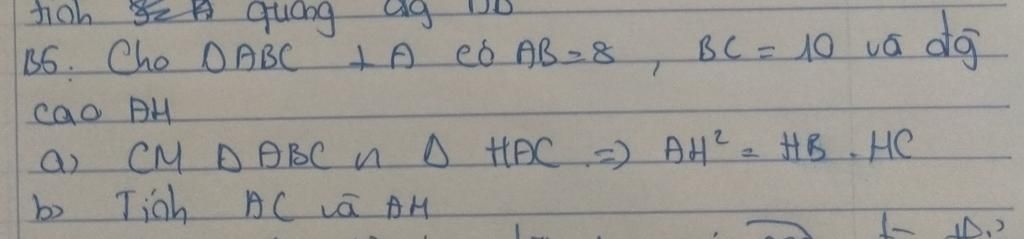 tích quãng đg
B6: Cho Δ ABC ⊥ A có AB = 8, BC = 10 và đg
cao AH
a) CM Δ ABC ∽ Δ HAC ⇒ AH² = HB . HC
b) Tính AC và AH